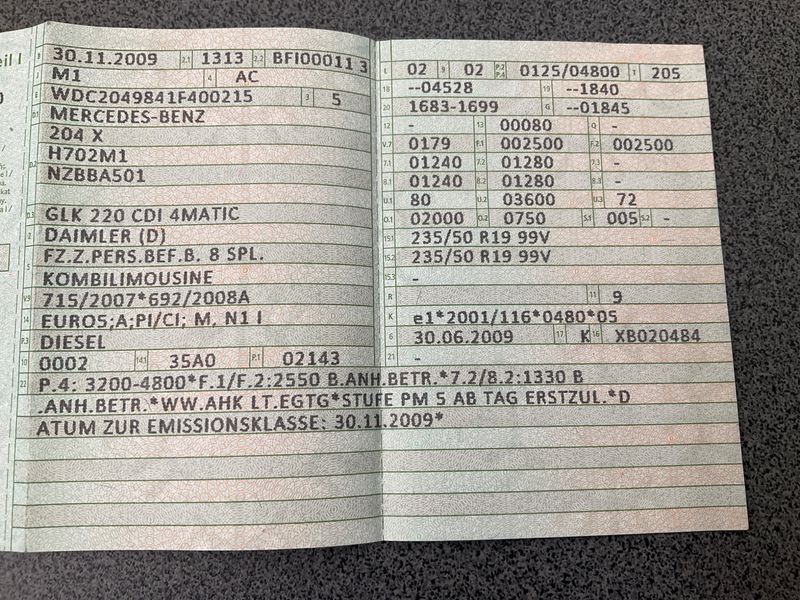 eil I
B 30.11.2009 2.1 1313 2.2 BFI00011 3
J M1 4 AC
E WDC2049841F400215 3 5
D.1 MERCEDES-BENZ
204 X
D.2 H702M1
NZBBA501
D.3 GLK 220 CDI 4MATIC
2 DAIMLER (D)
5 FZ.Z.PERS.BEF.B. 8 SPL.
KOMBILIMOUSINE
V.9 715/2007*692/2008A
14 EURO5;A;PI/CI; M, N1 I
P.3 DIESEL
10 0002 14.1 35A0 P.1 02143
L 02 9 02 P.2 P.4 0125/04800 T 205
18 --04528 19 --1840
20 1683-1699 G --01845
12 - 13 00080 Q -
V.7 0179 F.1 002500 F.2 002500
7.1 01240 7.2 01280 7.3 -
8.1 01240 8.2 01280 8.3 -
U.1 80 U.2 03600 U.3 72
O.1 02000 O.2 0750 S.1 005 S.2 -
15.1 235/50 R19 99V
15.2 235/50 R19 99V
15.3 -
R 11 9
K e1*2001/116*0480*05
6 30.06.2009 17 K 16 XB020484
21 -
22 P.4: 3200-4800*F.1/F.2:2550 B.ANH.BETR.*7.2/8.2:1330 B
.ANH.BETR.*WW.AHK LT.EGTG*STUFE PM 5 AB TAG ERSTZUL.*D
ATUM ZUR EMISSIONSKLASSE: 30.11.2009*